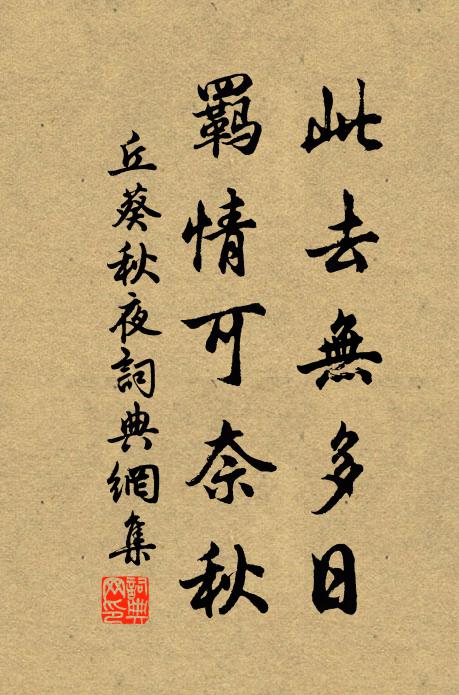 此去無多日
羈情可奈秋
丘葵秋夜詞典網集
詞典網印